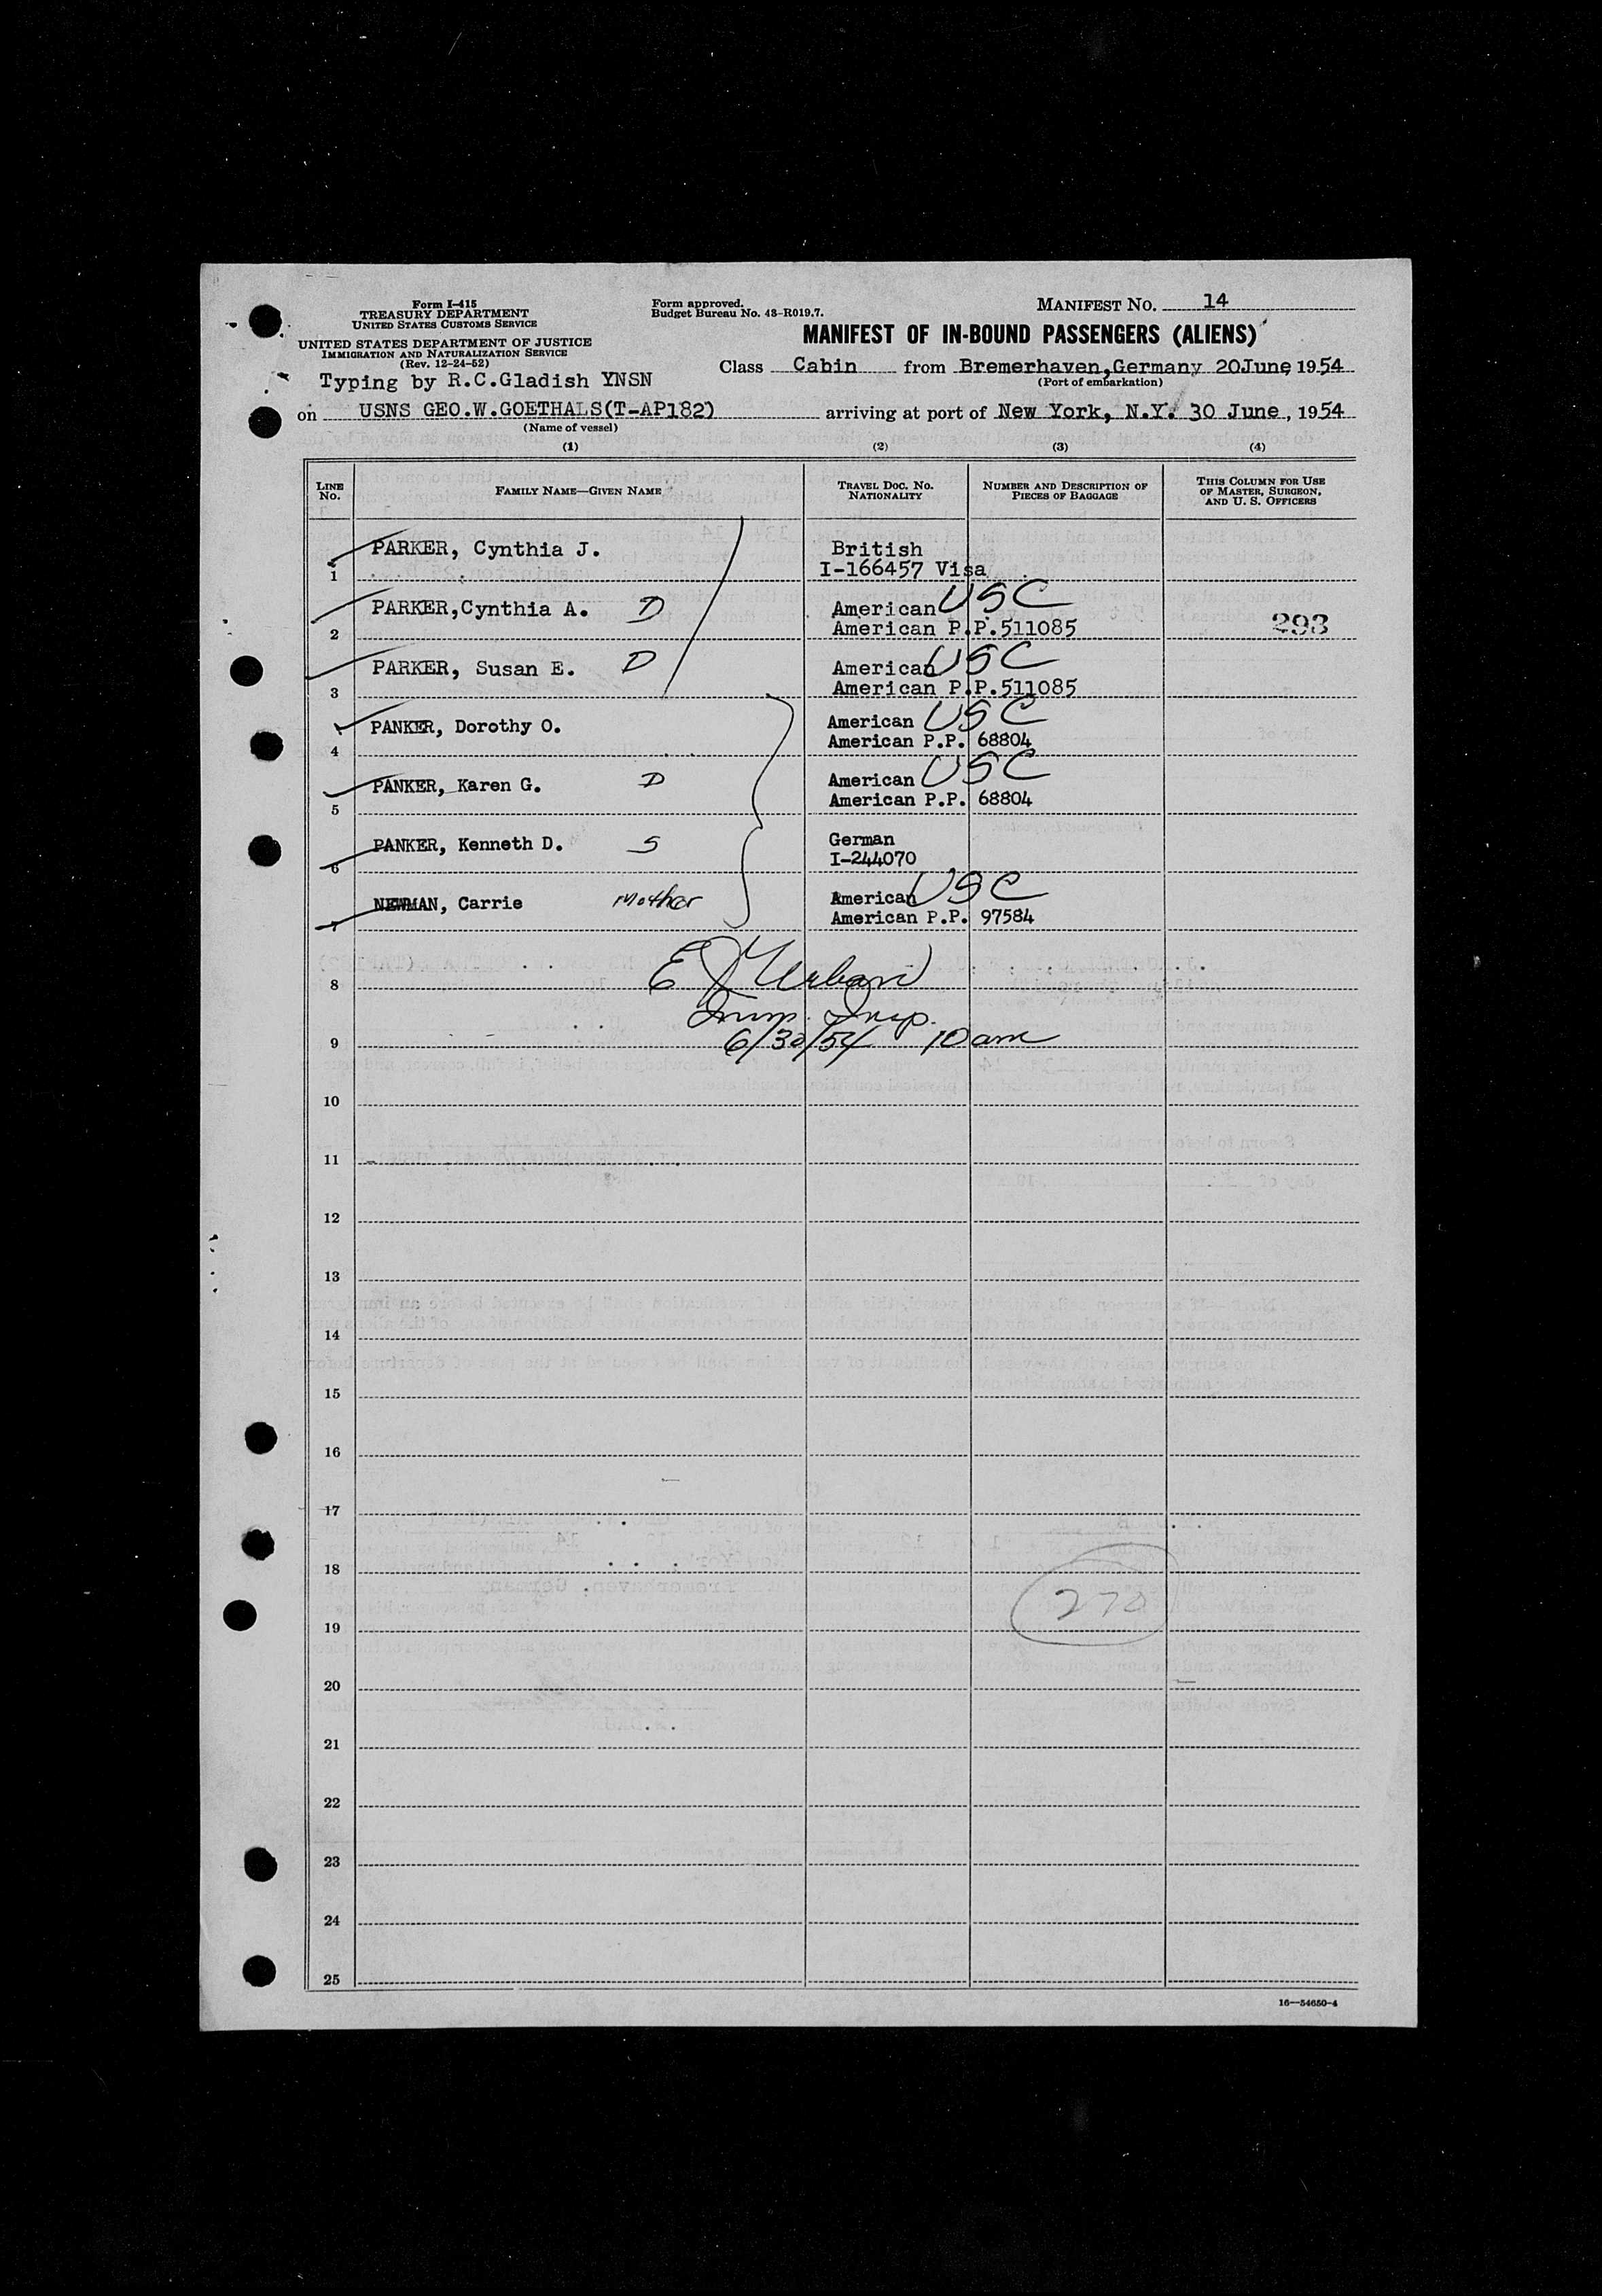 Form I-415
TREASURY DEPARTMENT
UNITED STATES CUSTOMS SERVICE
UNITED STATES DEPARTMENT OF JUSTICE
IMMIGRATION AND NATURALIZATION SERVICE
(Rev. 12-24-52)
Typing by R.C.Gladish YNSN
Form approved.
Budget Bureau No. 43-R019.7.
MANIFEST NO. 14
MANIFEST OF IN-BOUND PASSENGERS (ALIENS)
Class Cabin from Bremerhaven,Germany 20June, 1954
(Port of embarkation)
on USNS GEO.W.GOETHALS(T-AP182) arriving at port of New York, N.Y. 30 June, 1954
(Name of vessel)
(1) (2) (3) (4)
LINE NO. FAMILY NAME—GIVEN NAME TRAVEL DOC. NO. NATIONALITY NUMBER AND DESCRIPTION OF PIECES OF BAGGAGE THIS COLUMN FOR USE OF MASTER, SURGEON, AND U. S. OFFICERS
PARKER, Cynthia J. British
1 I-166457 Visa
PARKER,Cynthia A. D American USC
2 American P.P.511085 293
PARKER, Susan E. D American USC
3 American P.P.511085
PANKER, Dorothy O. American USC
4 American P.P. 68804
PANKER, Karen G. D American USC
5 American P.P. 68804
PANKER, Kenneth D. S German
6 I-244070
NEWMAN, Carrie Mother American USC
7 American P.P. 97584
8 E J Urban
Imm. Insp.
9 6/30/54 10 am
10
11
12
13
14
15
16
17
18
270
19
20
21
22
23
24
25
16—54650-4